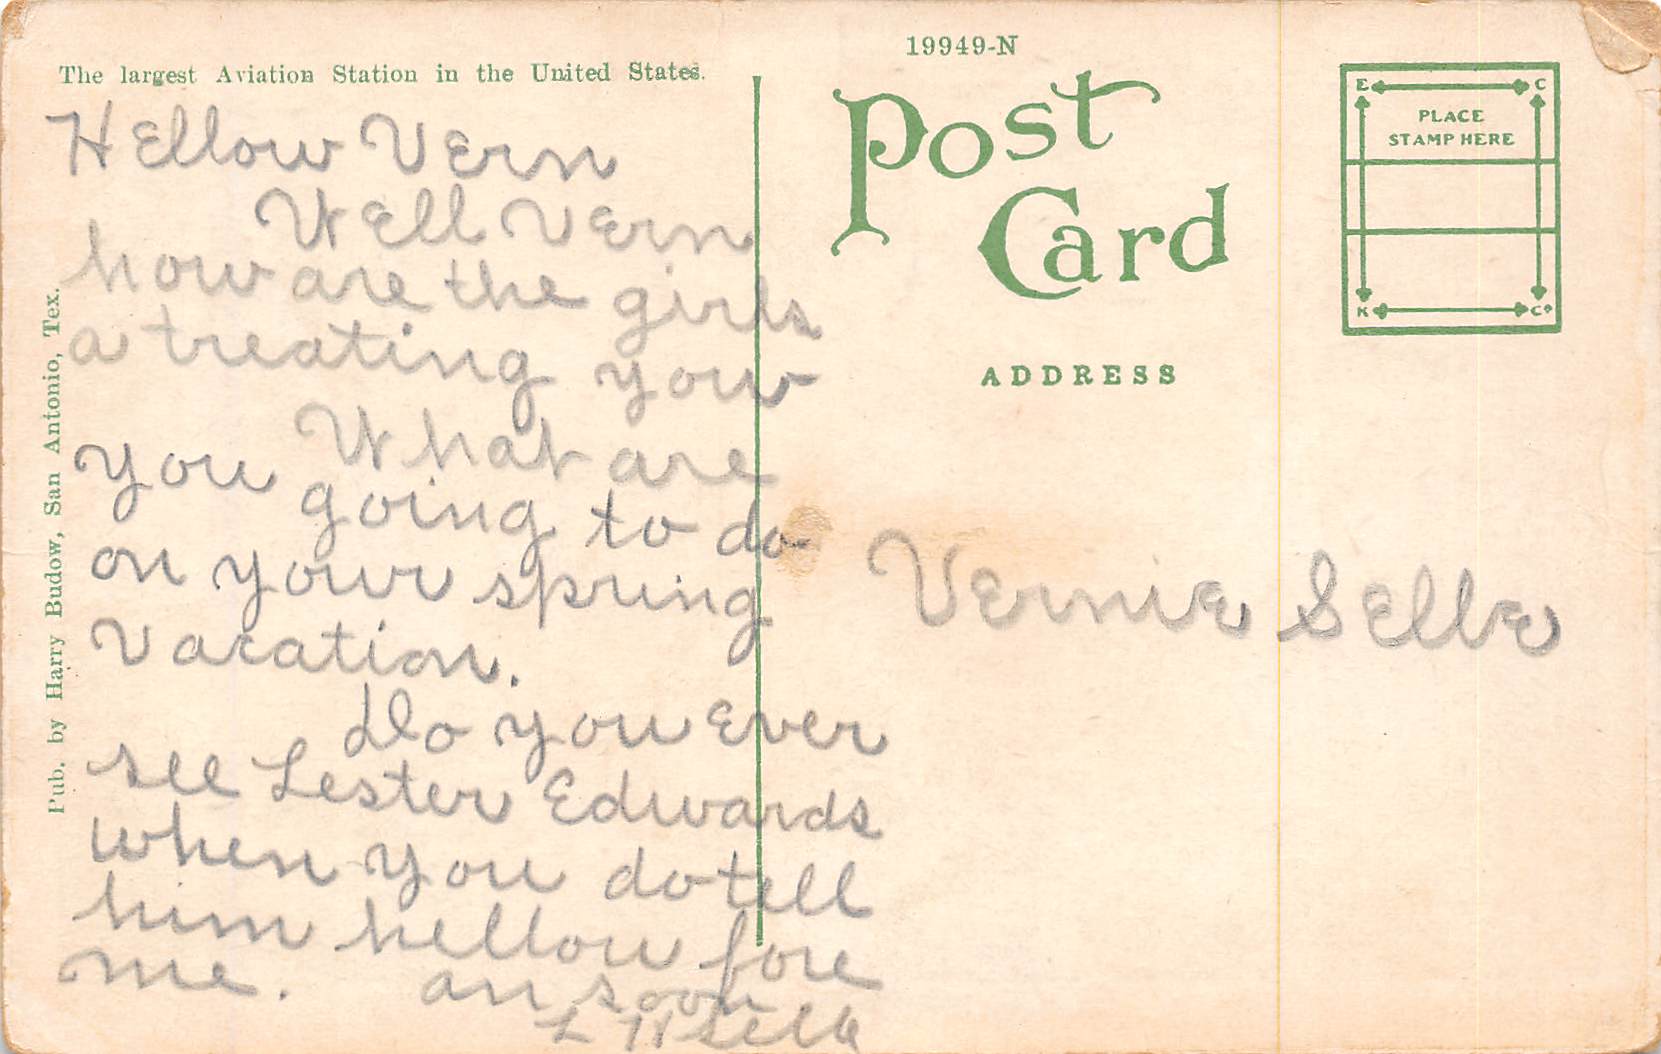 The largest Aviation Station in the United States.
Hellow Vern
Well Vern
how are the girls
a treating your
What are
you going to do
on your spring
Vacation.
Do you Ever
see Lester Edwards
when you do tell
him hellow fore
me. an soon
L W Selle
Pub. by Harry Budow, San Antonio, Tex.
19949-N
Post
Card
E C
PLACE
STAMP HERE
K Co
ADDRESS
Vernie Selle